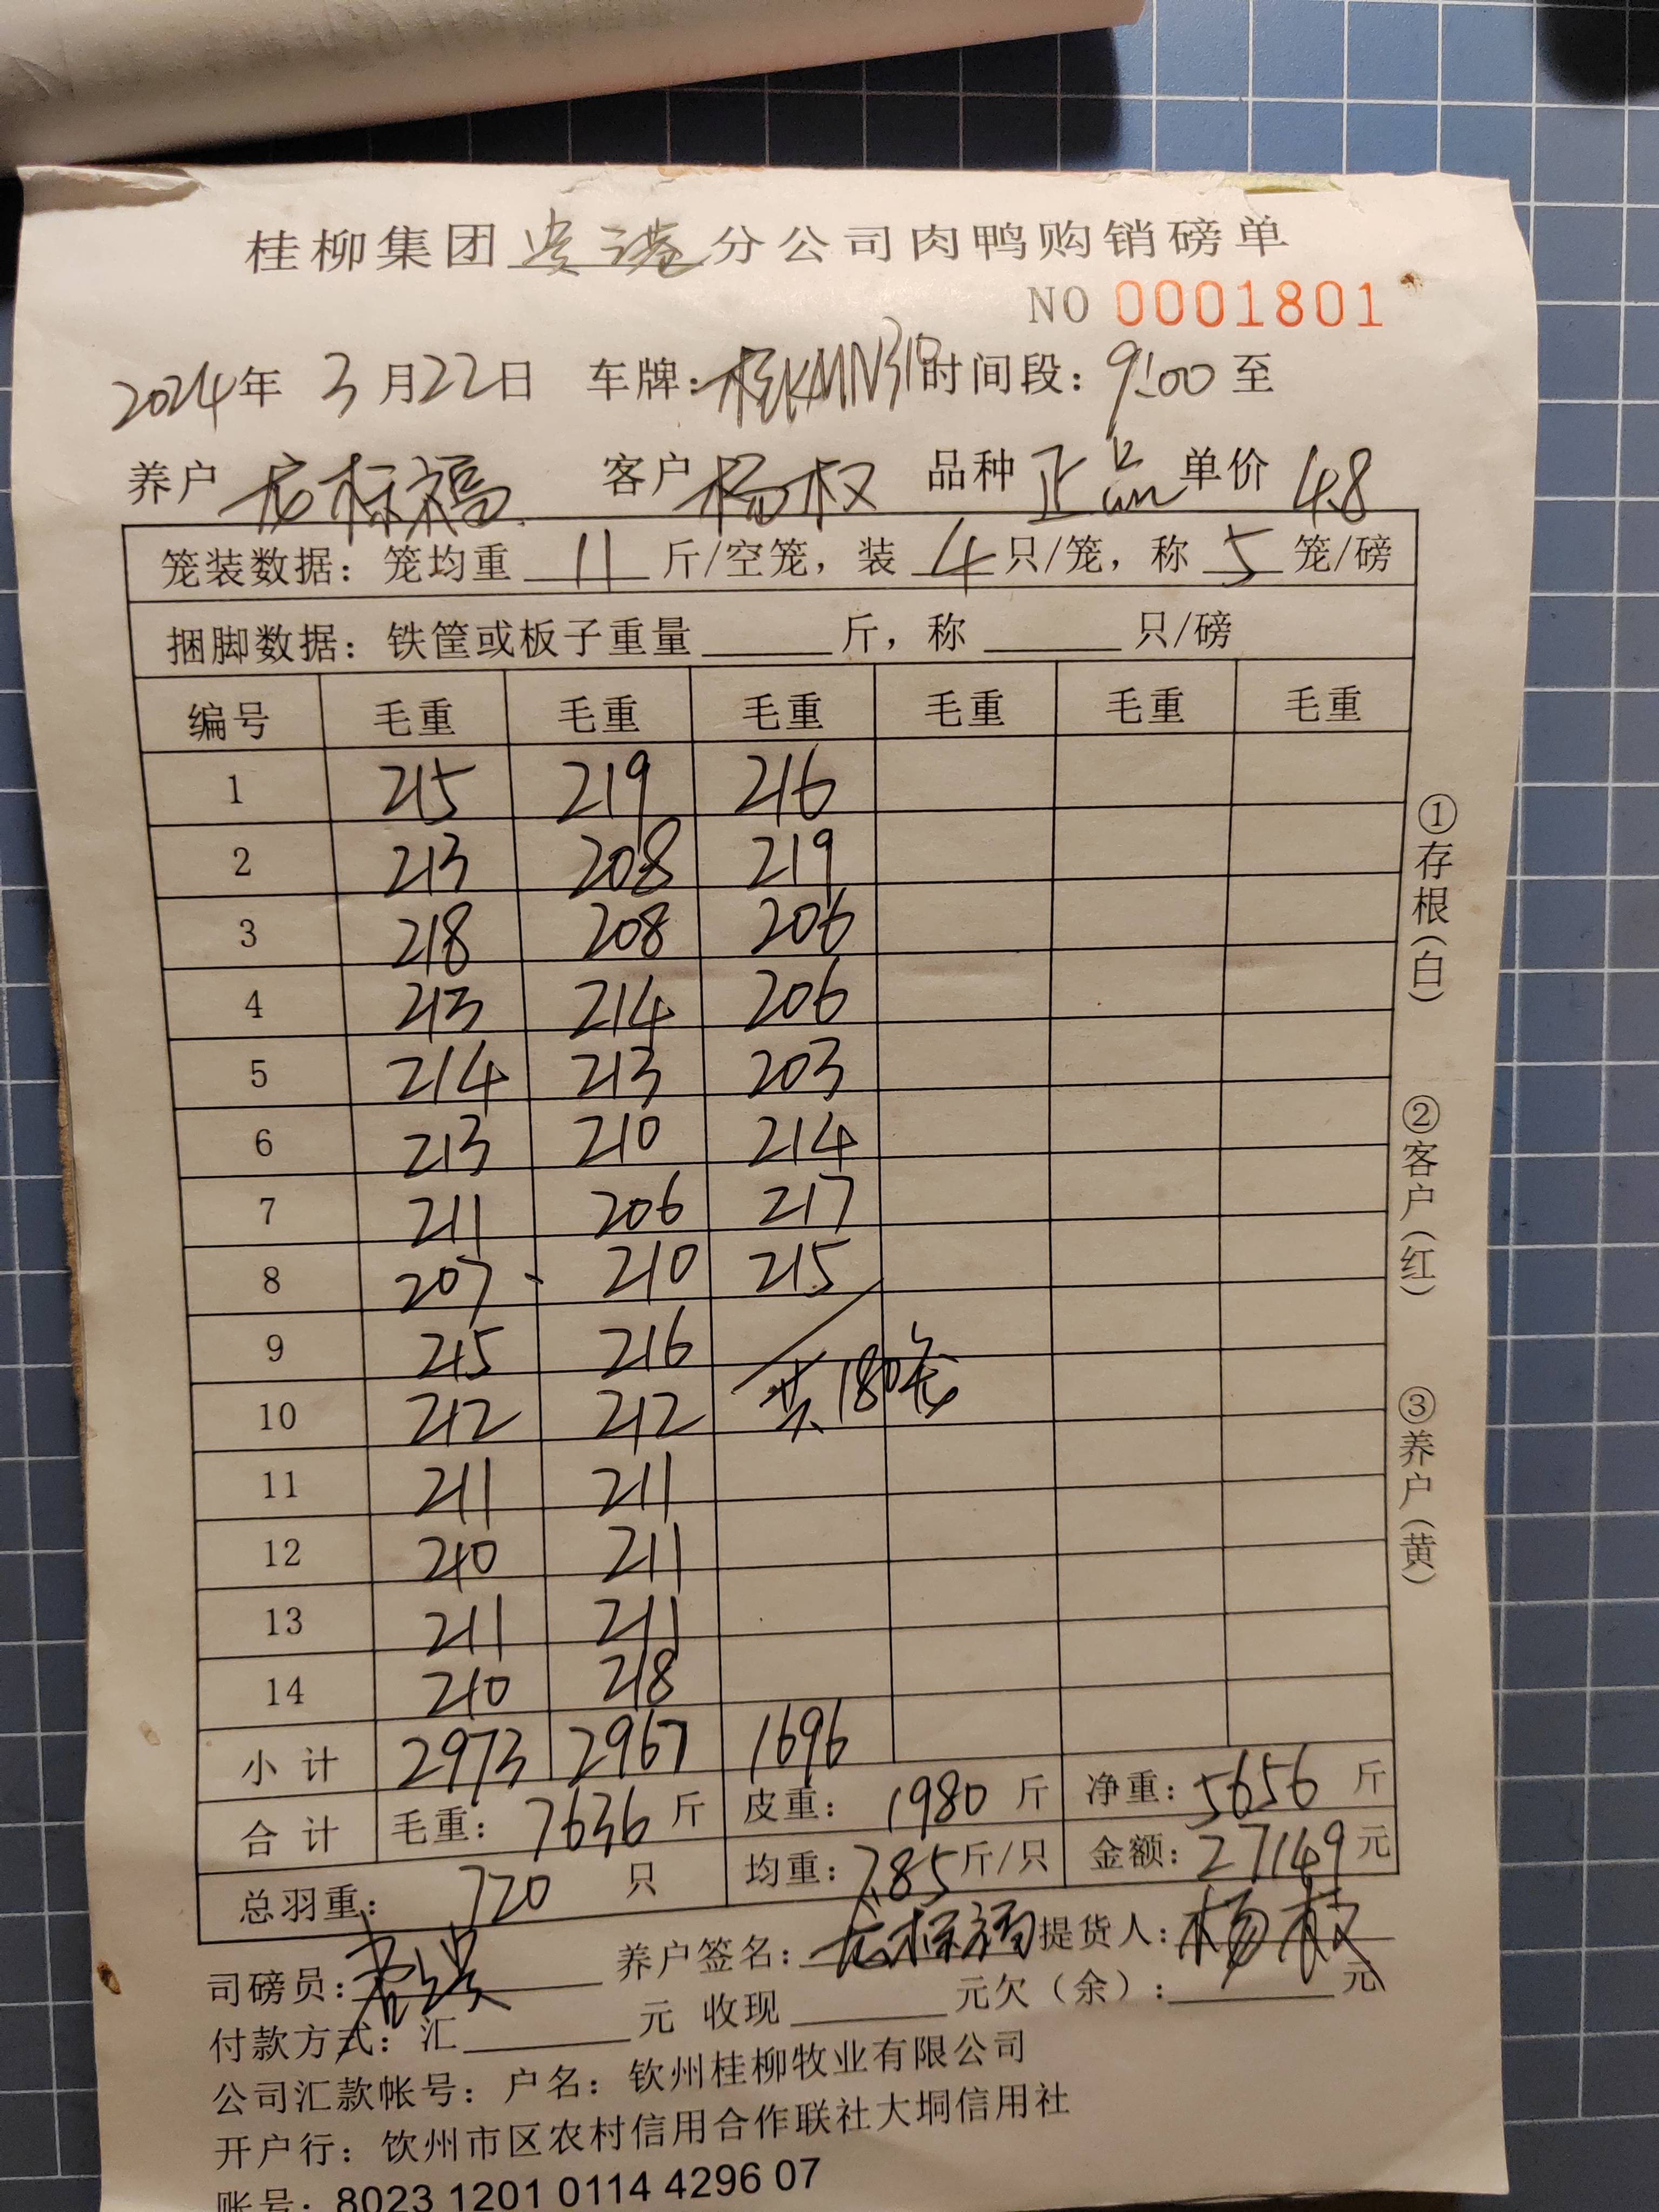 桂柳集团贵港分公司肉鸭购销磅单
NO 0001801
2024年 3月22日 车牌：桂KMN310 时间段：9:00 至
养户 标福 客户 杨权 品种 正品 单价 4.8
笼装数据：笼均重 11 斤/空笼，装 4 只/笼，称 5 笼/磅
捆脚数据：铁筐或板子重量______斤，称______只/磅
编号 毛重 毛重 毛重 毛重 毛重 毛重
1 215 219 216
2 213 208 219
3 218 208 206
4 213 214 206
5 214 213 203
6 213 210 214
7 211 206 217
8 207 210 215
9 215 216
10 212 212 共180笼
11 211 211
12 210 211
13 211 211
14 210 218
小计 2973 2967 1696
合计 毛重：7636斤 皮重：1980斤 净重：5656斤
总羽重：720只 均重：7.85斤/只 金额：27149元
司磅员： 养户签名：标福 提货人：杨权
付款方式：汇______元 收现______元欠（余）：______元
公司汇款帐号：户名：钦州桂柳牧业有限公司
开户行：饮州市区农村信用合作联社大垌信用社
账号：8023 1201 0114 4296 07
①存根（白）
②客户（红）
③养户（黄）